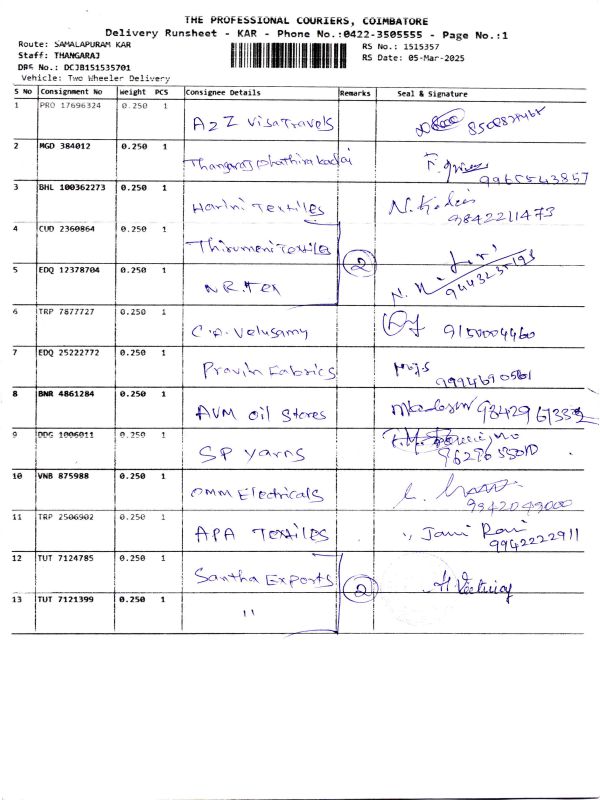 THE PROFESSIONAL COURIERS, COIMBATORE
Delivery Runsheet - KAR - Phone No.:0422-3505555 - Page No.:1
Route: SAMALAPURAM KAR
RS No.: 1515357
Staff: THANGARAJ
RS Date: 05-Mar-2025
DRS No.: DCJB151535701
Vehicle: Two Wheeler Delivery
S No Consignment No Weight PCS Consignee Details Remarks Seal & Signature
1 PRO 17696324 0.250 1 A2Z VisaTravels
2 MGD 384012 0.250 1 Thangaraj 9965543857
3 BHL 100362273 0.250 1 Harini Textiles 9842211473
4 CUD 2360864 0.250 1 Thirumeni Textiles 2
5 EDQ 12378704 0.250 1 N.R.Tex
6 TRP 7877727 0.250 1 C.A. Velusamy 9150004460
7 EDQ 25222772 0.250 1 Pravin Fabrics
8 BNR 4861284 0.250 1 AVM Oil Stores
9 DDG 1006011 0.250 1 SP Yarns
10 VNB 875988 0.250 1 OMM Electricals
11 TRP 2506902 0.250 1 APA Textiles Jami Rani 9942222911
12 TUT 7124785 0.250 1 Santha Exports 2
13 TUT 7121399 0.250 1 "